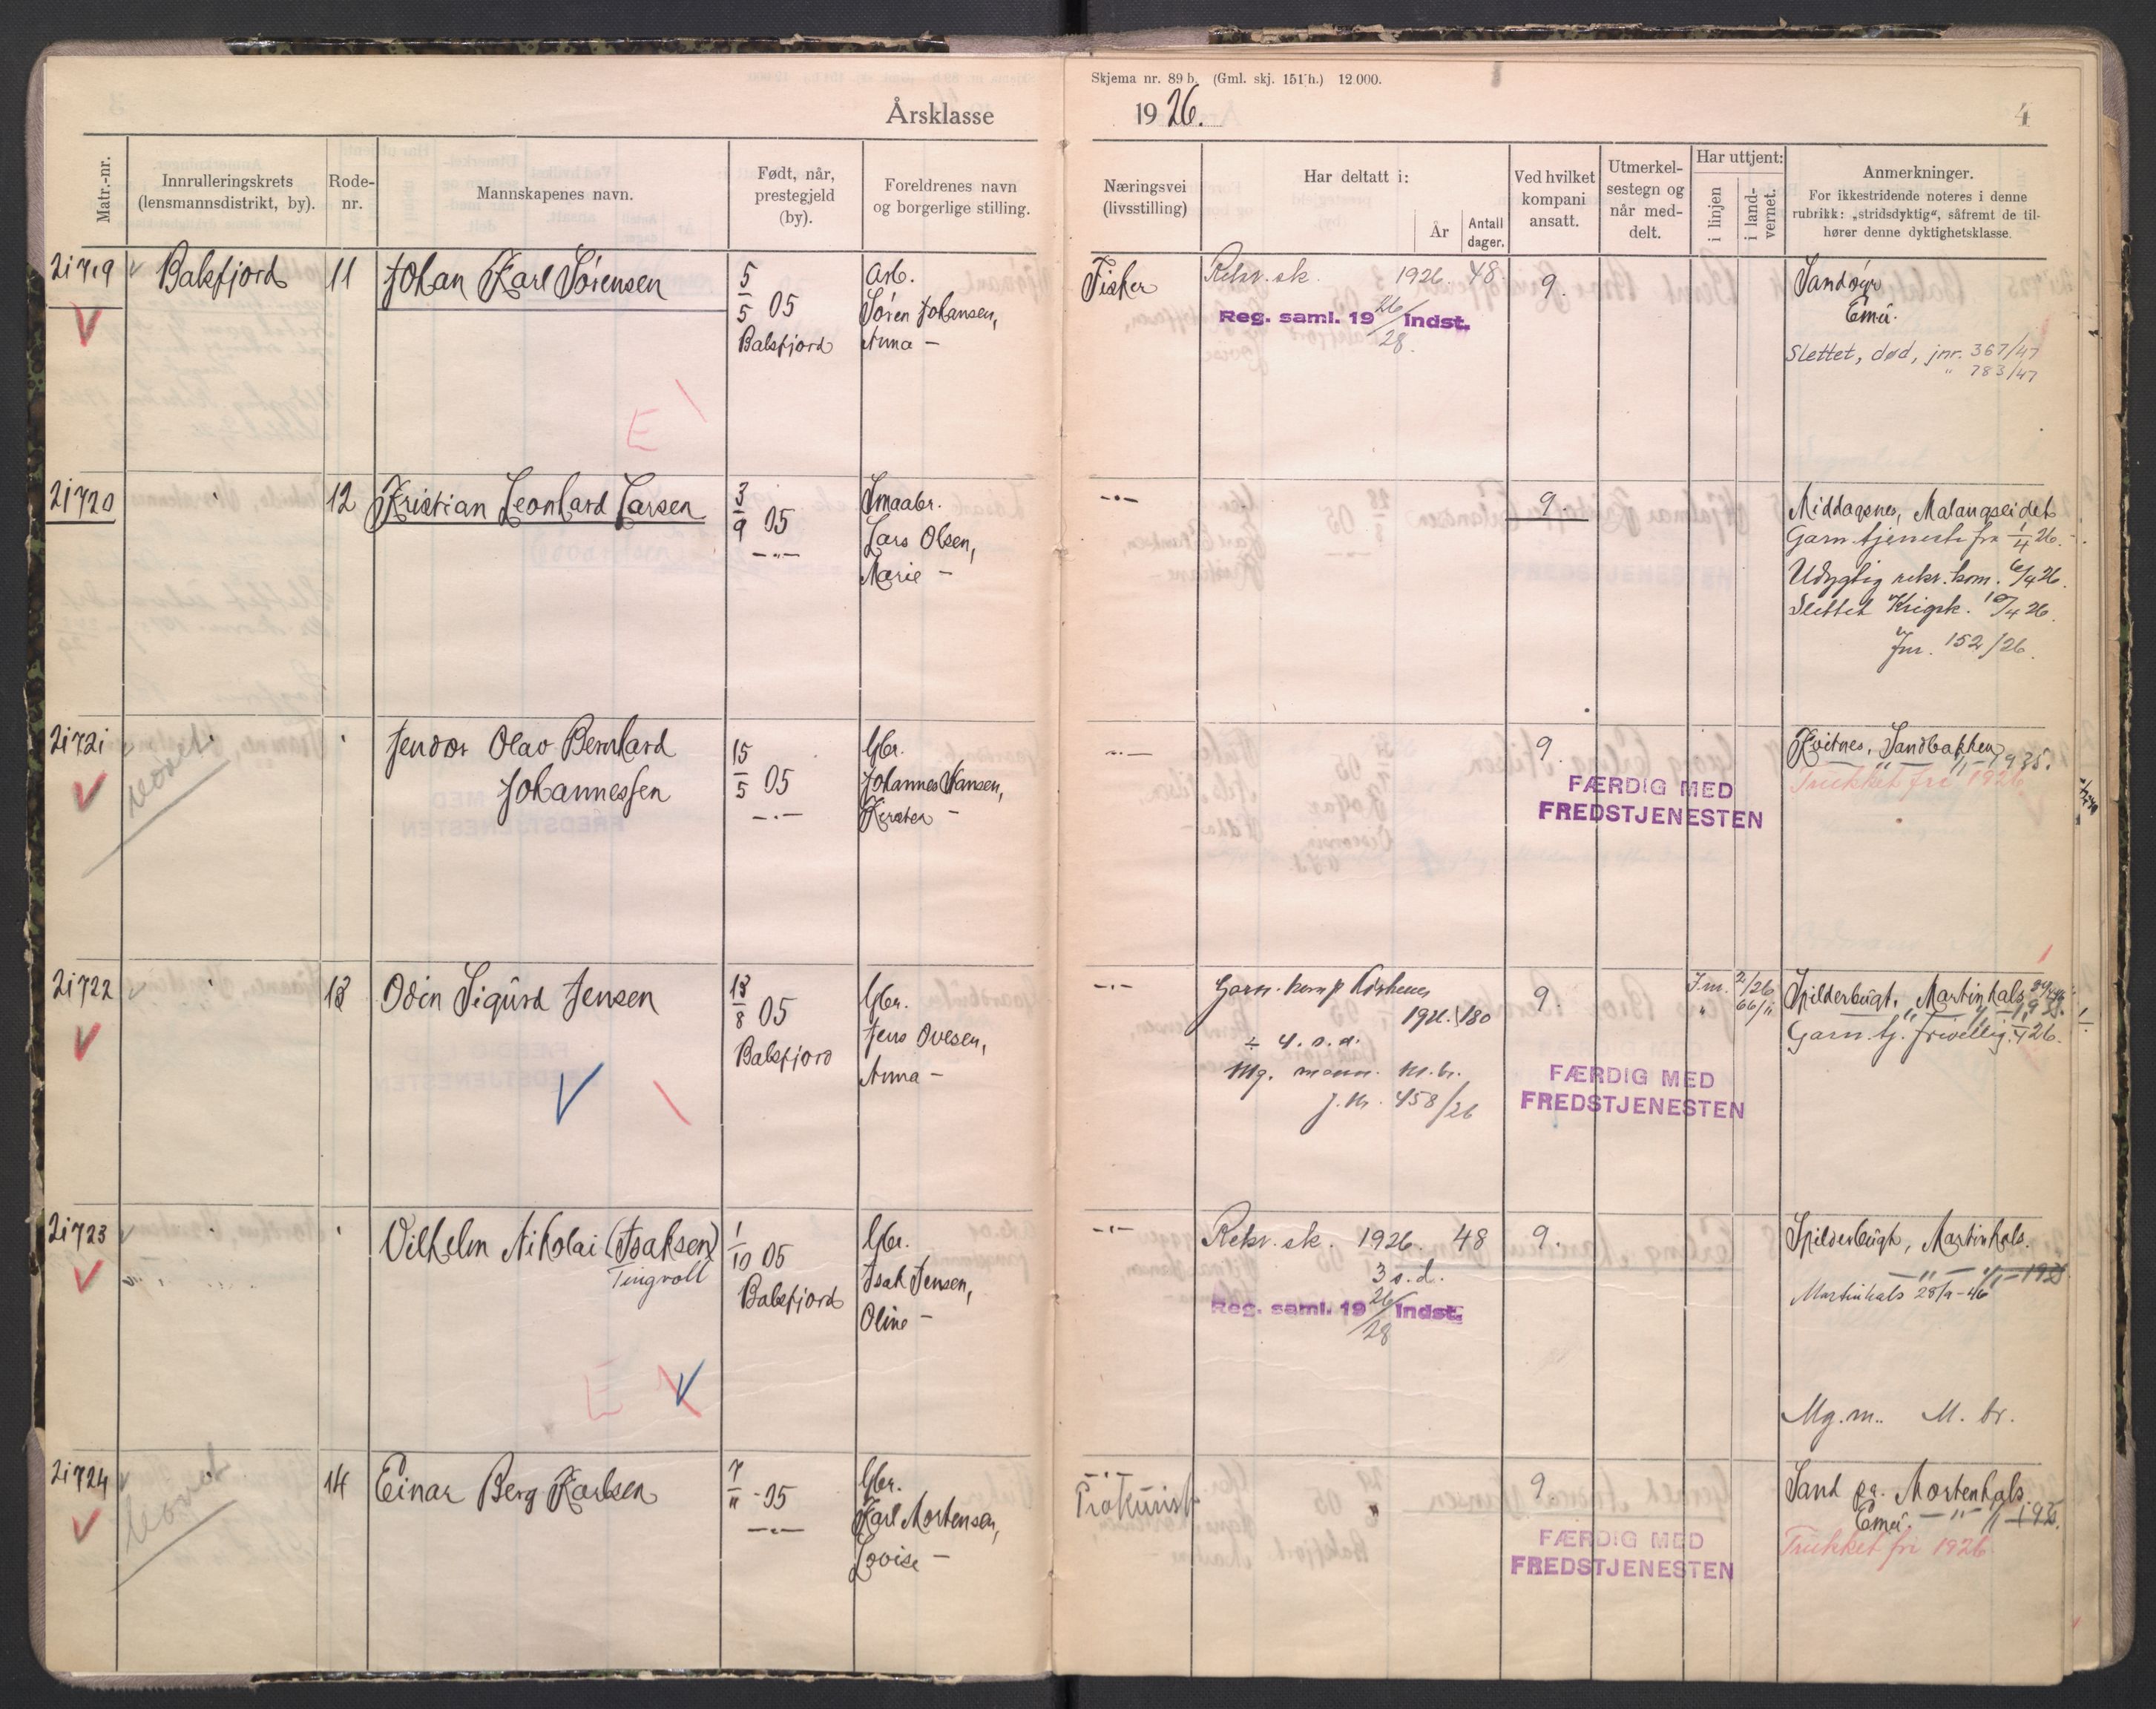 Skjema nr. 89 b. (Gml. skj. 151 h.) 12.000.
Årsklasse 1926.
4
Matr.-nr.
Innrulleringskrets
(lensmannsdistrikt, by).
Rode-
nr.
Mannskapenes navn.
Født, når,
prestegjeld
(by).
Foreldrenes navn
og borgerlige stilling.
Næringsvei
(livsstilling)
Har deltatt i:
År
Antall
dager.
Ved hvilket
kompani
ansatt.
Utmerkel-
sestegn og
når med-
delt.
Har uttjent:
i linjen
i land-
vernet.
Anmerkninger.
For ikkestridende noteres i denne
rubrikk: „stridsdyktig“, såfremt de til-
hører denne dyktighetsklasse.
21719 Balsfjord 11 Johan Karl Sørensen
5/5 05
Balsfjord
Arb.
Søren Johansen,
Anna —
E
Fisker
Rekr. sk. 1926. 48
Reg. saml. 19 26/28 Indst.
9.
Sandøyr
Emä.
Slettet, død, jnr. 367/47
" 783/47
21720 " 12 Kristian Leonhard Larsen
3/9 05
—"—
Smaabr.
Lars Olsen,
Marie —
—"—
9.
Middagsnes, Malangseidet
Garn. tjeneste fra 1/4 26.
Udygtig rekr. kom. 6/4 26.
Slettet Krigsk. 10/4 26.
Jnr. 152/26.
21721 " " Jendor Olav Bernhard
Johannessen
15/5 05
—"—
Gbr.
Johannes Hansen,
Kirsten —
—"—
9.
FÆRDIG MED
FREDSTJENESTEN
Kvitnes, Sandbakken
—"— 1/1-1935.
Trukket fri 1926
21722 " 13 Odin Sigurd Jensen
13/8 05
Balsfjord
Gbr.
Jens Ovesen,
Anna —
—"—
Garn. komp Kirkenes
1926. 180
+ 4. s. d.
Mg. mann. M. br.
j. nr. 458/26
9.
FÆRDIG MED
FREDSTJENESTEN
J.nr. 2/26
" 66/"
Spilderbugt, Martinhals
Garn. tj. frivillig 1/4 26.
21723 " " Vilhelm Nikolai (Isaksen)
Tingvoll
1/10 05
Balsfjord
Gbr.
Isak Jensen,
Oline —
E
—"—
Rekr. sk. 1926. 48
3 s. d.
Reg. saml. 19 26/28 Indst.
9.
Spilderbugt, Martinhals.
—"— 1/1-1935
Martinhals 28/9-46
Mg. m. M. br.
21724 " 14 Einar Berg Karlsen
7/11-05
—"—
Gbr.
Karl Mortensen,
Lovise —
—"—
Prokurist
"
9.
FÆRDIG MED
FREDSTJENESTEN
Sand pr. Mortenhals.
Emä. —"— 1/1-1935.
Trukket fri 1926